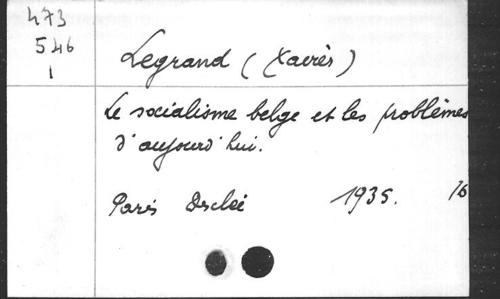 473
546
1
Legrand (Xavier)
Le socialisme belge et les problèmes
d'aujourd'hui.
Paris Desclée 1935.